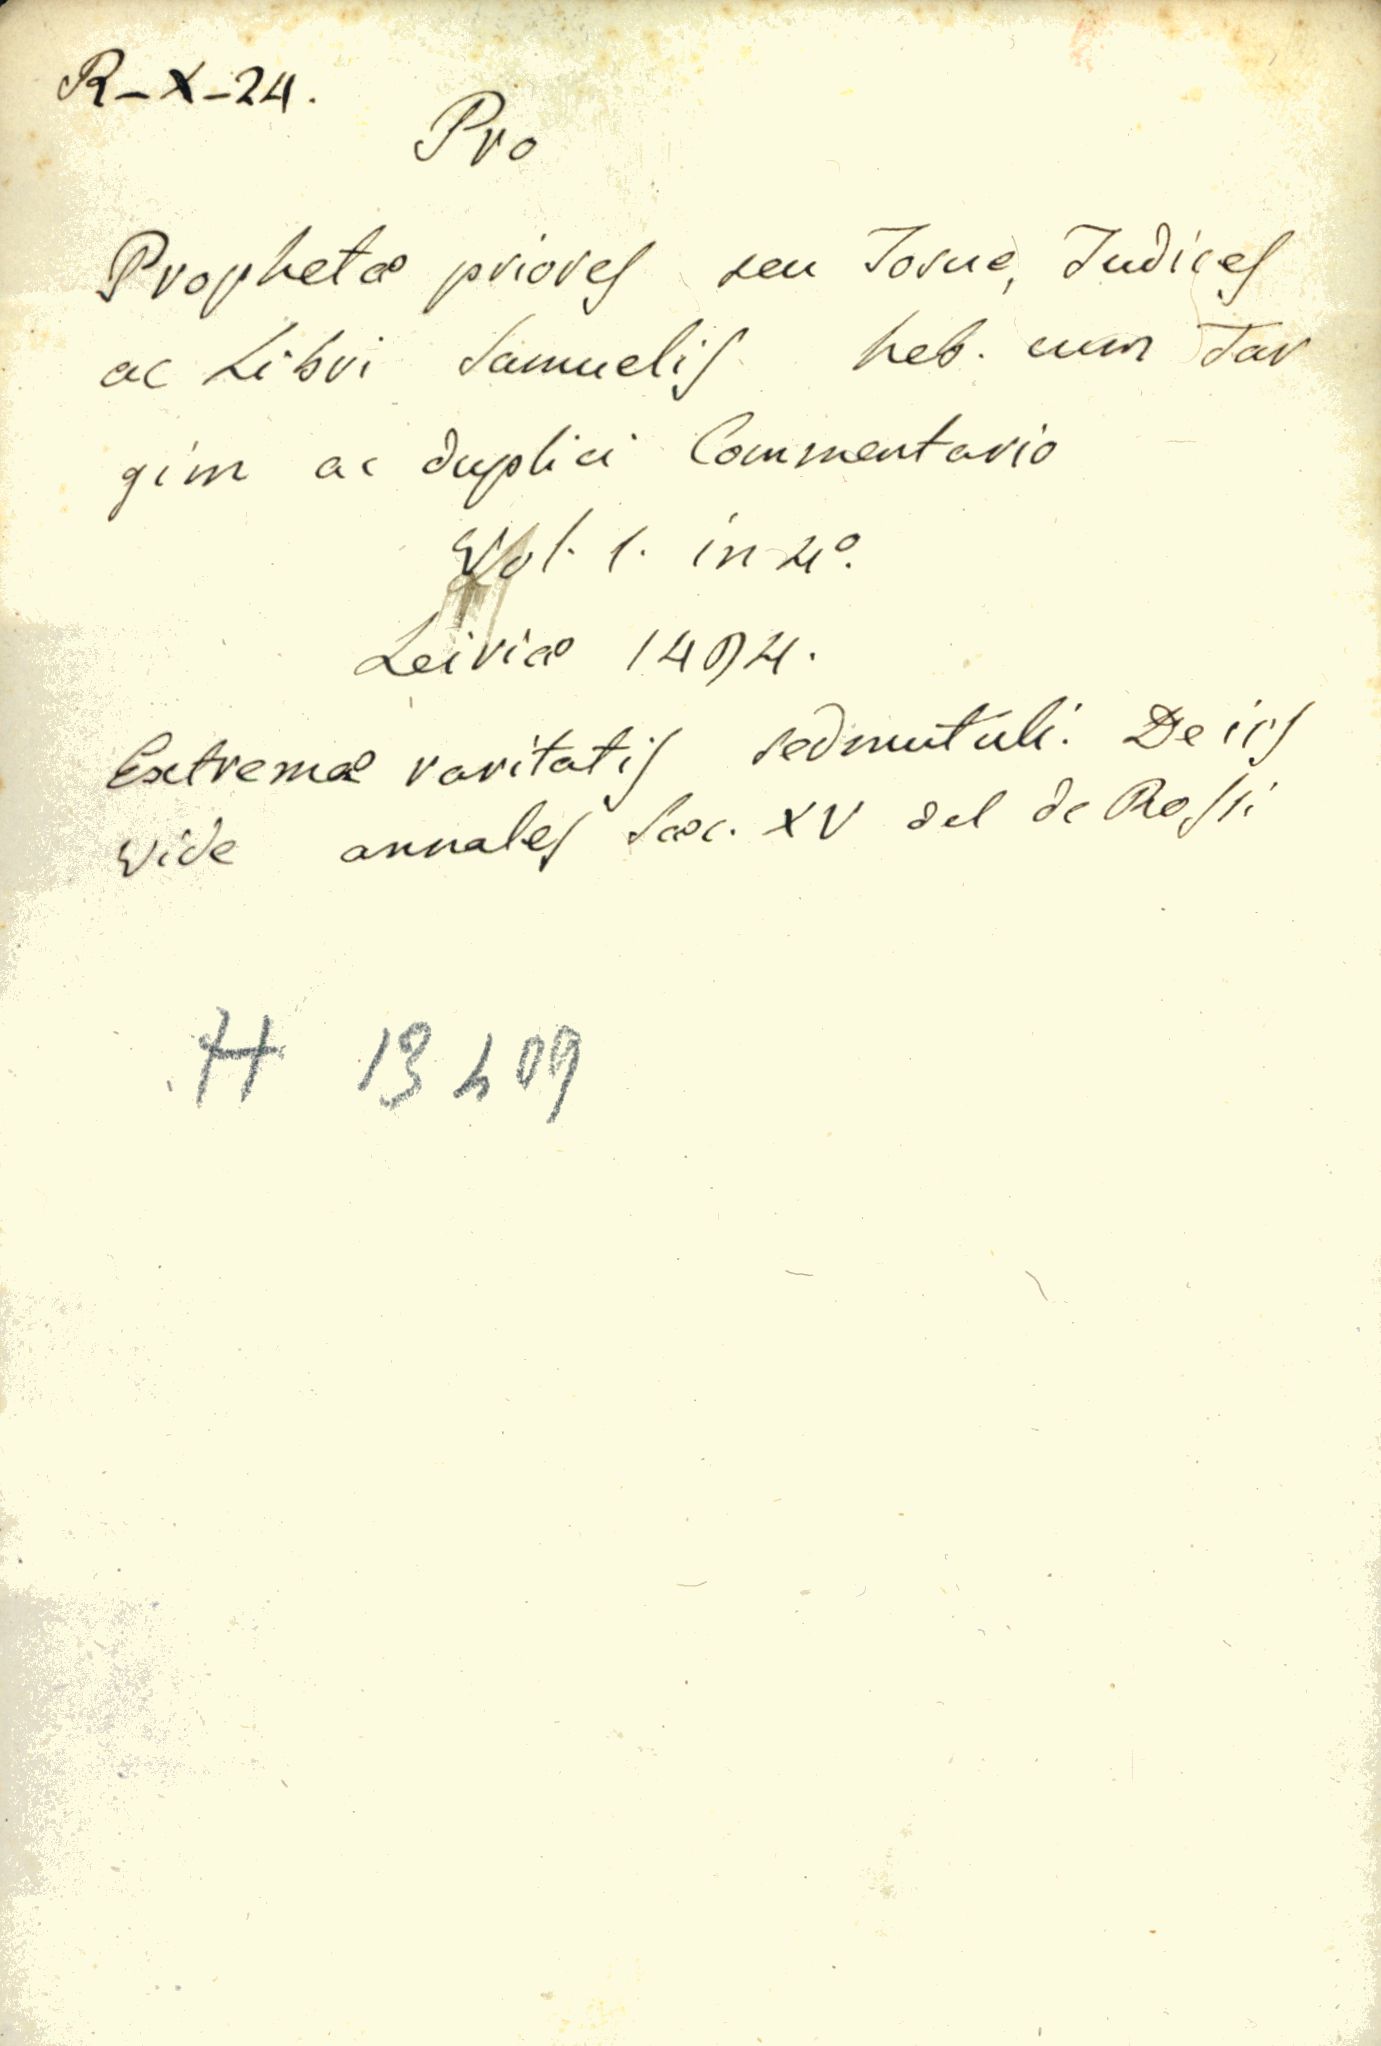 R-X-24.
Pro
Prophetæ priores seu Iosue, Iudices
ac Libri Samuelis heb. cum Tar
gim ac duplici Commentario
Vol. 1. in 4º.
Leiriæ 1494.
Extremæ raritatis sed mutuli. De iis
vide annales sæc. XV del de Rossi
H 13409